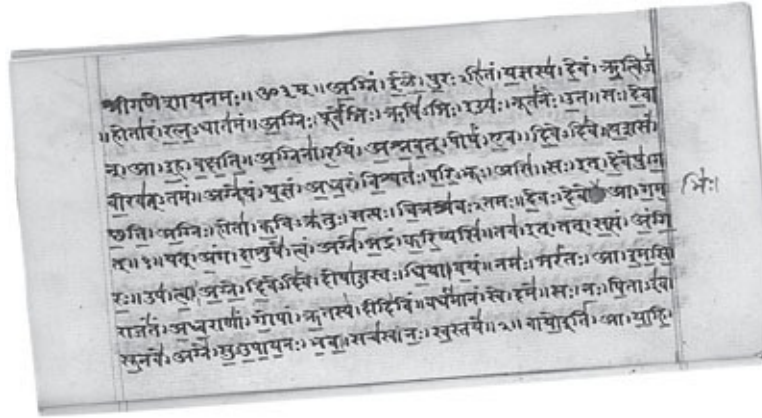 श्रीगणेशायनमः॥ॐ३म्॥अग्निं।ईळे।पुरःऽहितं।यज्ञस्य।देवं।ऋत्विजं
॥होतारं।रत्नऽधातमं॥अग्निः।पूर्वेभिः।ऋषिऽभिः।ईड्यः।नूतनैः।उत॥सः।देवा
न्।आ।इह।वक्षति॥अग्निना।रयिं।अश्नवत्।पोषं।एव।दिवेऽदिवे॥यशसं
वीरवत्ऽतमं॥अग्ने।यं।यज्ञं।अध्वरं।विश्वतः।परिऽभूः।असि॥सः।इत्।देवेषु।ग
च्छति।अग्निः।होता।कविऽक्रतुः।सत्यः।चित्रश्रवःऽतमः॥देवः।देवे आ।गम
भिः।
त्॥१॥यत्।अंग।दाशुषे।त्वं।अग्ने।भद्रं।करिष्यसि॥तव।इत्।तत्।सत्यं।अंगि
रः॥उप।त्वा।अग्ने।दिवेऽदिवे।दोषाऽवस्तः।धिया।वयं॥नमः।भरंतः।आ।इमसि
राजंतं।अध्वराणां।गोपां।ऋतस्य।दीदिविं॥वर्धमानं।स्वे।दमे॥सः।नः।पिताऽइव
सूनवे।अग्ने।सुऽउपायनः।भव॥सचस्व।नः।स्वस्तये॥२॥वायोइति।आ।याहि।